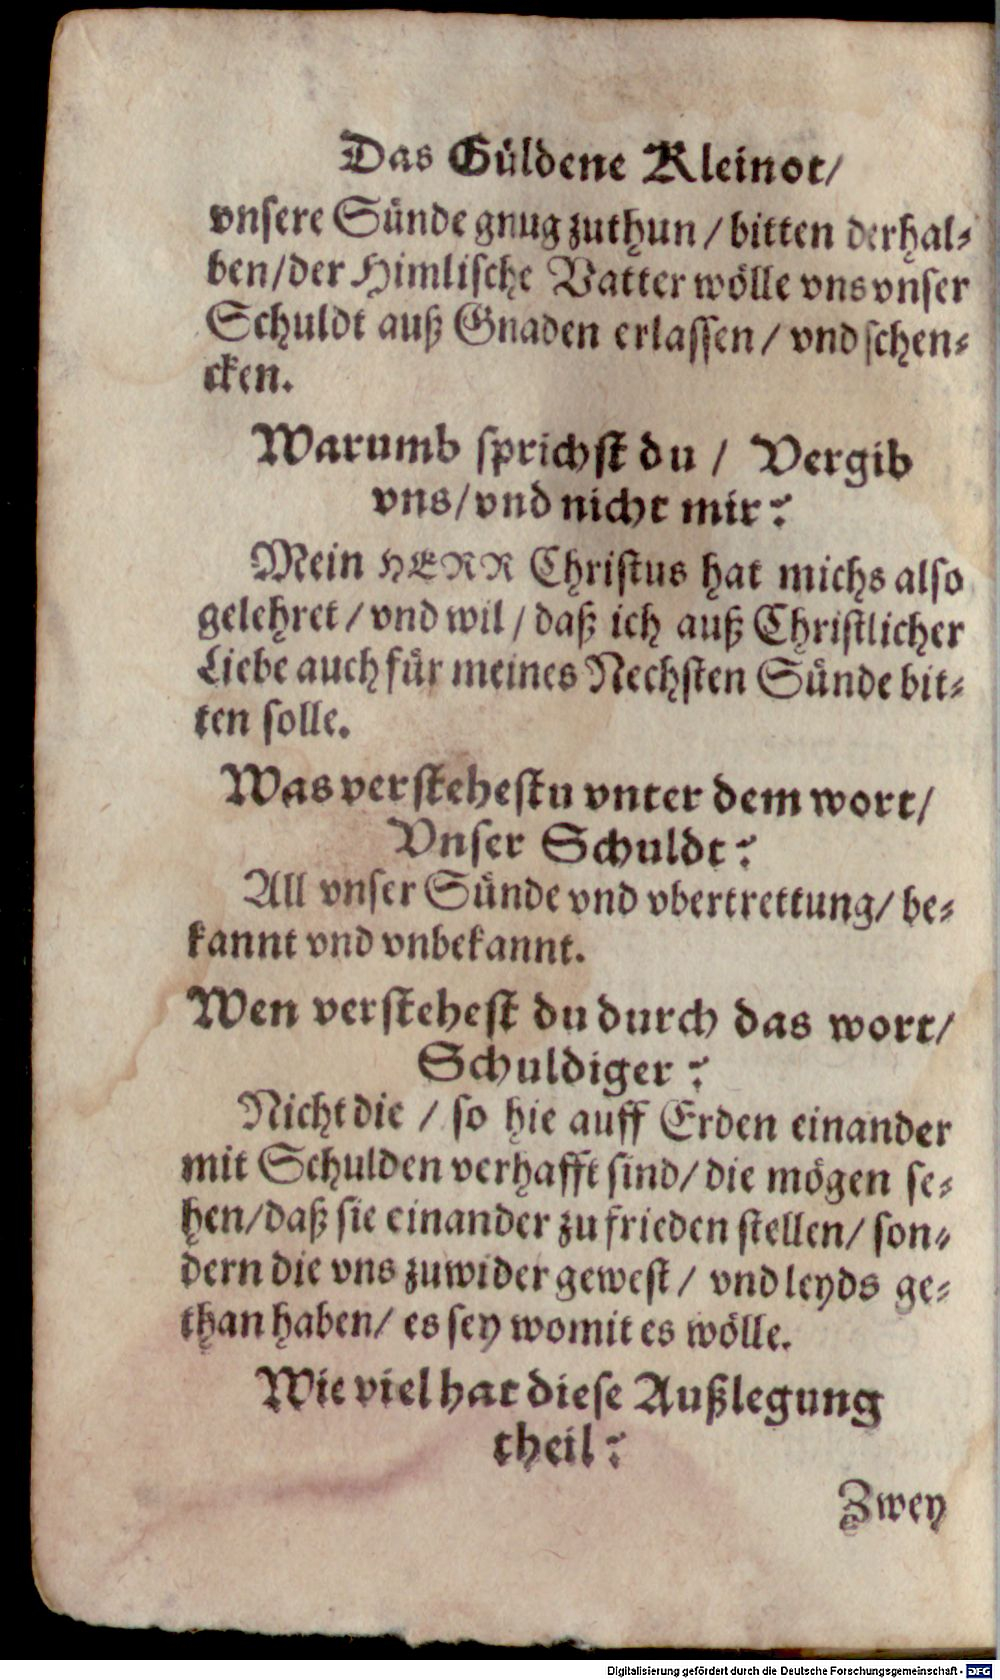 Das Güldene Kleinot/
vnsere Sünde gnug zuthun / bitten derhal-
ben/der Himlische Vatter wölle vns vnser
Schuldt auß Gnaden erlassen / vnd schen-
cken.
Warumb sprichst du / Vergib
vns/vnd nicht mir?
Mein HERR Christus hat michs also
gelehret / vnd wil / daß ich auß Christlicher
Liebe auch für meines Nechsten Sünde bit-
ten solle.
Was verstehestu vnter dem wort/
Vnser Schuldt?
All vnser Sünde vnd vbertrettung/ be-
kannt vnd vnbekannt.
Wen verstehest du durch das wort/
Schuldiger?
Nicht die / so hie auff Erden einander
mit Schulden verhafft sind/ die mögen se-
hen/daß sie einander zu frieden stellen/ son-
dern die vns zuwider gewest / vnd leyds ge-
than haben/ es sey womit es wölle.
Wie viel hat diese Außlegung
theil?
Zwey
Digitalisierung gefördert durch die Deutsche Forschungsgemeinschaft - DFG